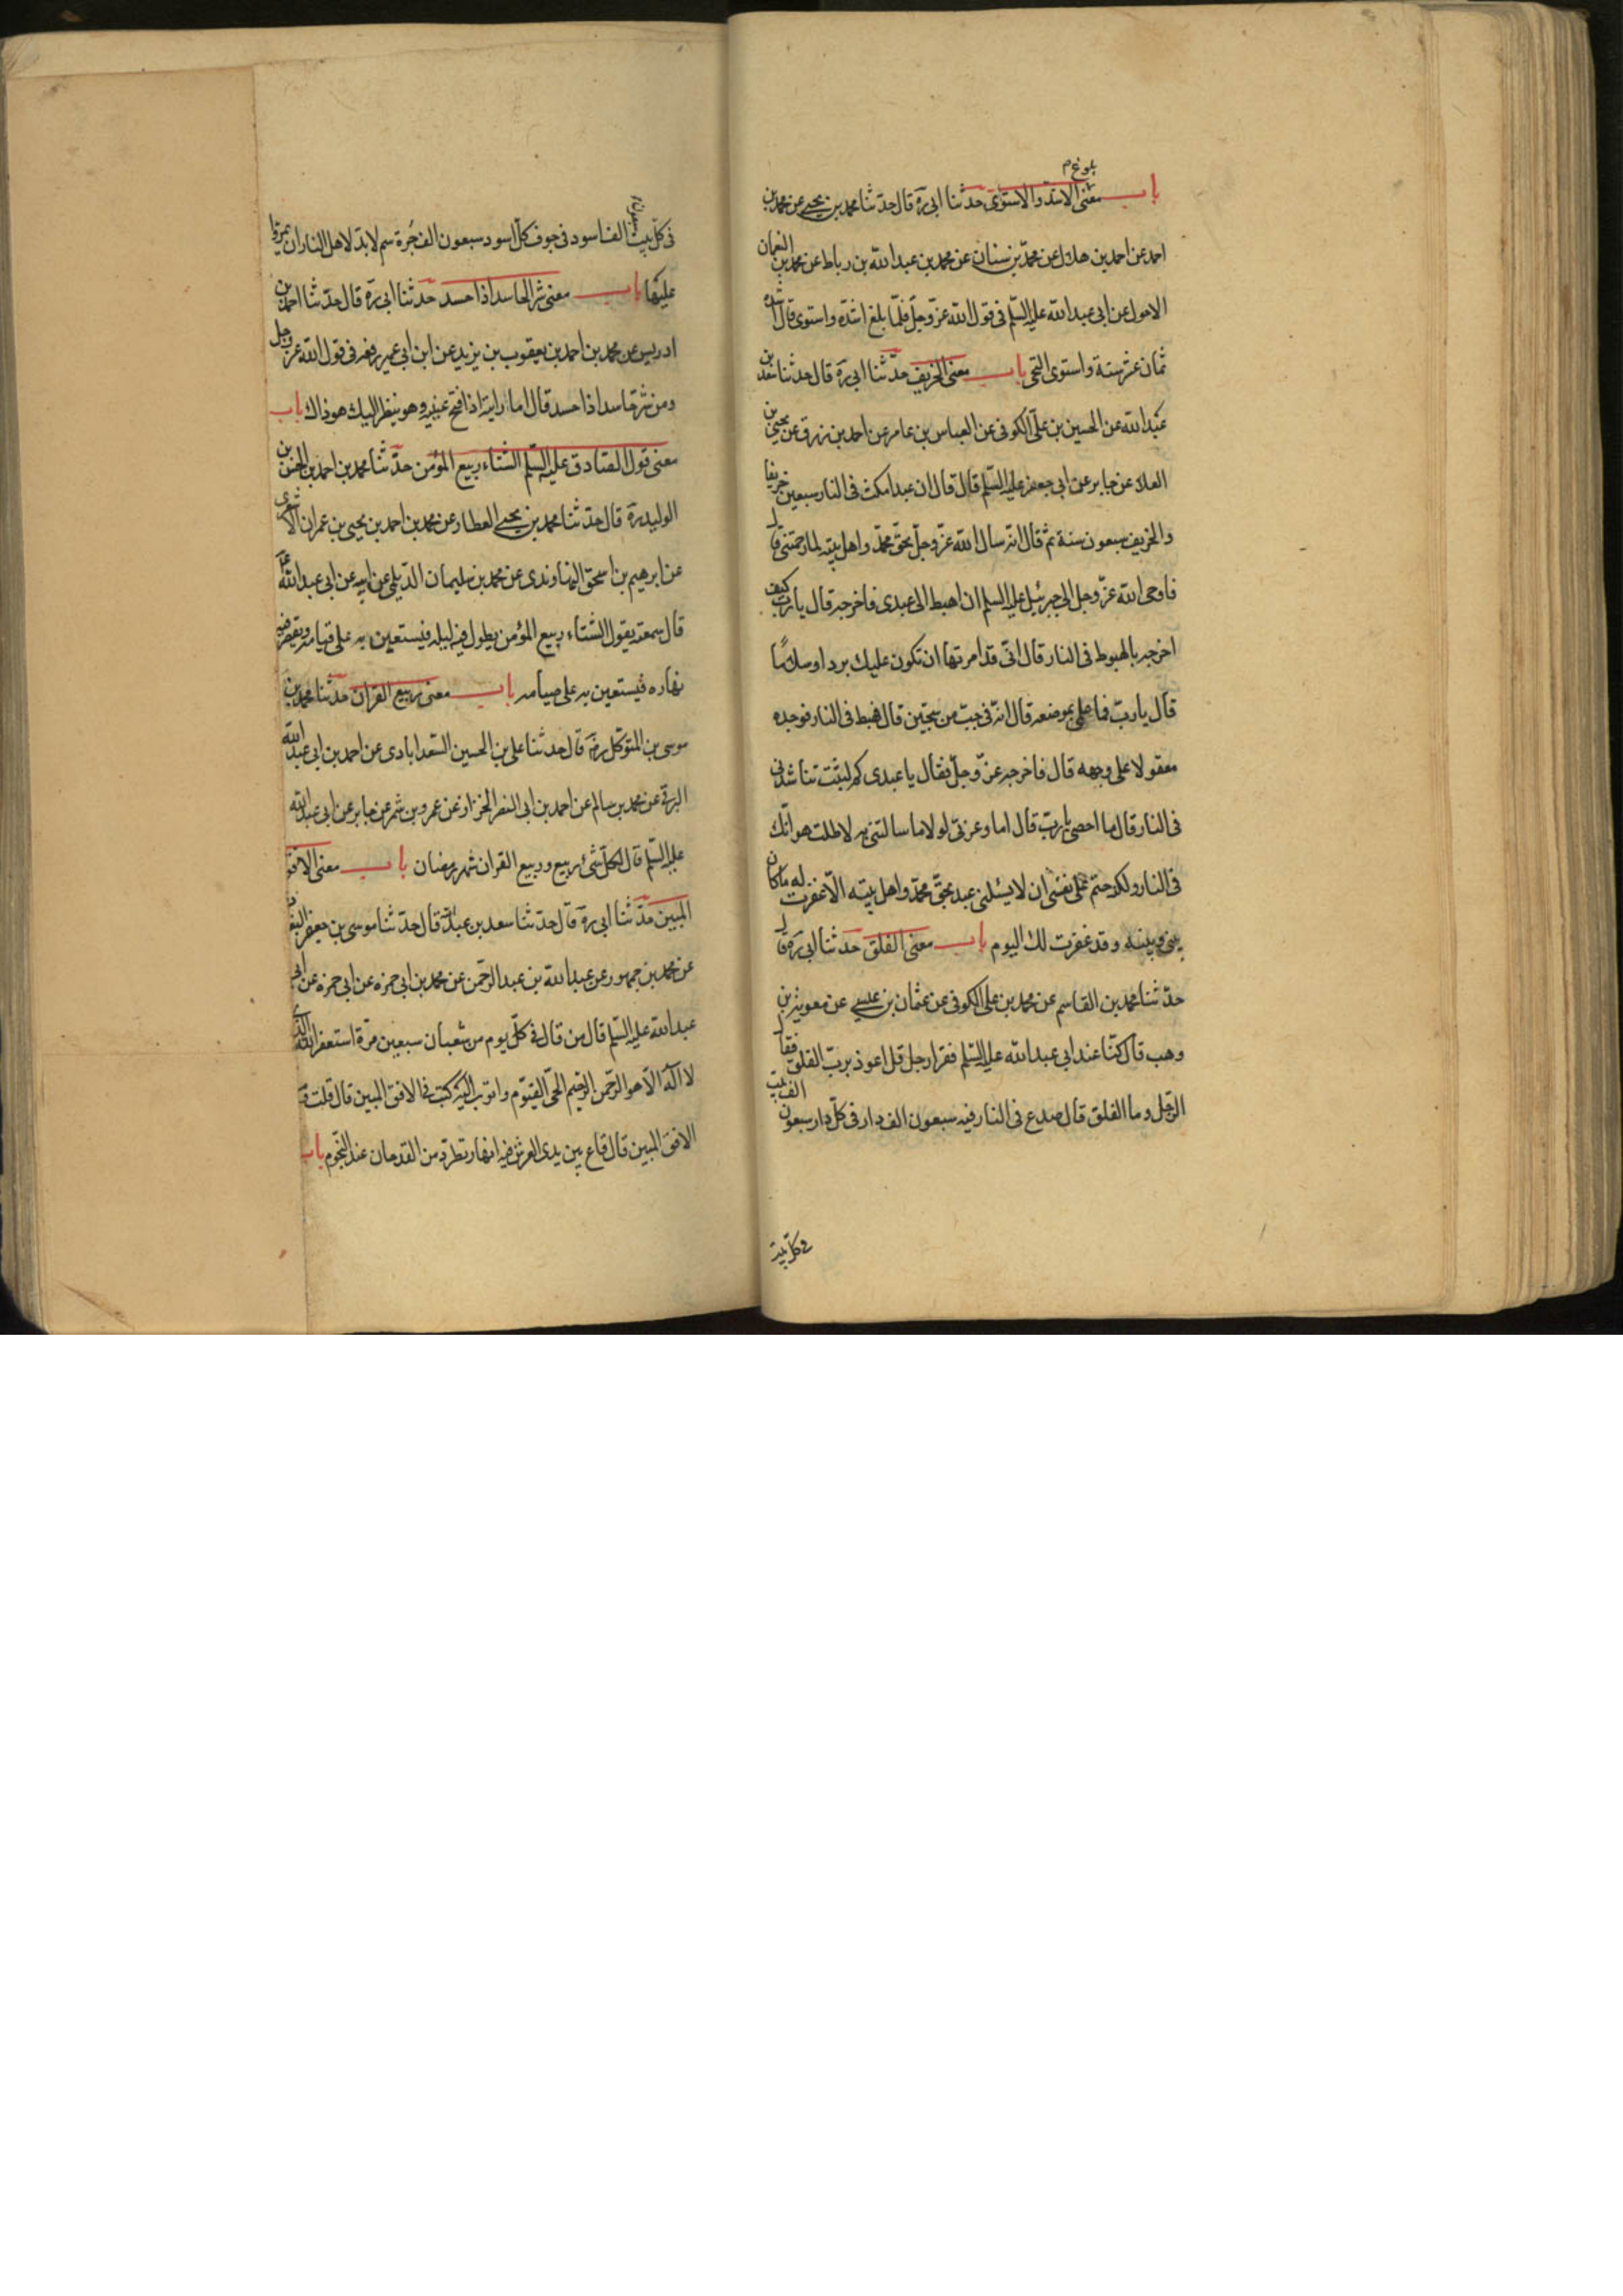 بلوغ م
باب معنى الاشد والاستوى حدثنا ابى ره قال حدثنا محمد بن يحيى عن محمد بن
احمد عن احمد بن هلال عن محمد بن سنان عن محمد بن عبد الله بن رباط عن محمد بن النعمان
الاحول عن ابى عبد الله عليه السلم فى قول الله عز وجل فلما بلغ اشده واستوى قال اشده
ثمان عشر سنة واستوى التحى باب معنى الخريف حدثنا ابى ره قال حدثنا سعد بن
عبد الله عن الحسين بن على الكوفى عن العباس بن عامر عن احمد بن رزق عن يحيى بن
العلا عن جابر عن ابى جعفر عليه السلم قال قال ان عبدا مكث فى النار سبعين خريفا
والخريف سبعون سنة ثم قال انه سال الله عز وجل بحق محمد واهل بيته لما رحمتنى قال
فاوحى الله عز وجل الى جبرئيل عليه السلم ان اهبط الى عبدى فاخرجه قال يا رب كيف
اخرجه بالهبوط فى النار قال انى قد امرتها ان تكون عليك بردا وسلاما
قال يا رب فما علمى بموضعه قال انه فى جب من سجين قال فهبط فى النار فوجده
معقولا على وجهه قال فاخرجه عز وجل فقال يا عبدى كم لبثت تناشدنى
فى النار قال ما احصى يا رب قال اما وعزتى لولا ما سالتنى به لاطلت هوانك
فى النار ولكن حتم على نفسى ان لا يسئلنى عبد بحق محمد واهل بيته الا غفرت له ما كان
بينى وبينه وقد غفرت لك اليوم باب معنى الفلق حدثنا ابى ره قال
حدثنا محمد بن القاسم عن محمد بن على الكوفى عن عثمان بن عيسى عن معوية بن
وهب قال كنا عند ابى عبد الله عليه السلم فقرا رجل قل اعوذ برب الفلق فقال
الرجل وما الفلق قال صدع فى النار فيه سبعون الف دار فى كل دار سبعون الف بيت
فى كل بيت
فى كل بيت سبعون الف اسود فى جوف كل اسود سبعون الف جرة سم لا بد لاهل النار ان يمروا
عليها باب معنى شر الحاسد اذا حسد حدثنا ابى ره قال حدثنا احمد بن
ادريس عن محمد بن احمد بن يعقوب بن يزيد عن ابن ابى عمير رفعه فى قول الله عز وجل
ومن شر حاسد اذا حسد قال اما رايته اذا فتح عينيه وهو ينظر اليك هو ذاك باب
معنى قول الصادق عليه السلم الشتاء ربيع المؤمن حدثنا محمد بن احمد بن الحسن بن
الوليد ره قال حدثنا محمد بن يحيى العطار عن محمد بن احمد بن يحيى بن عمران الاشعرى
عن ابرهيم بن اسحق النهاوندى عن محمد بن سليمان الديلمى عن ابيه عن ابى عبد الله
قال سمعته يقول الشتاء ربيع المؤمن يطول فيه ليله فيستعين به على قيامه ويقصر فيه
نهاره فيستعين به على صيامه باب معنى ربيع القران حدثنا محمد بن
موسى بن المتوكل ره قال حدثنا على بن الحسين السعدابادى عن احمد بن ابى عبد الله
البرقى عن محمد بن سالم عن احمد بن ابى النضر الخزاز عن عمرو بن شمر عن جابر عن ابى عبد الله
عليه السلم قال لكل شئ ربيع وربيع القران شهر رمضان باب معنى الافق
المبين حدثنا ابى ره قال حدثنا سعد بن عبد الله قال حدثنا موسى بن جعفر
عن محمد بن جمهور عن عبد الله بن عبد الرحمن عن محمد بن ابى حمزه عن ابى حمزه عن ابى
عبد الله عليه السلم قال من قال فى كل يوم من شعبان سبعين مرة استغفر الله الذى
لا اله الا هو الرحمن الرحيم الحى القيوم واتوب اليه كتب فى الافق المبين قال قلت
الافق المبين قال قاع بين يدى العرش فيه انهار تطرد من القدحان عند النجوم باب